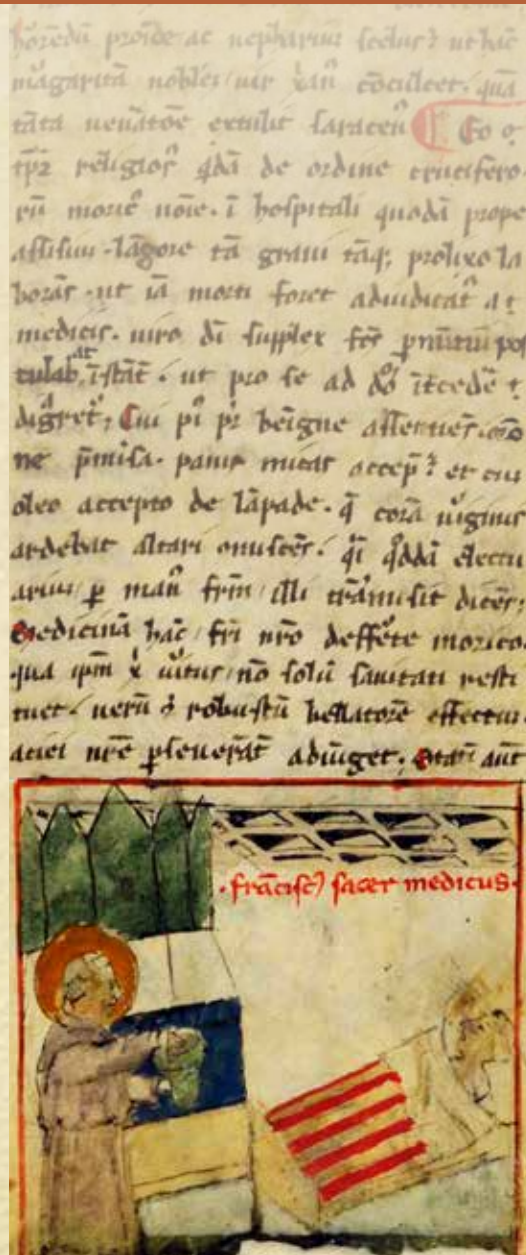 horēdū proīde ac nepharium scelus? ut hāc
māgaritā nobles uir xān cōculcet. quā
tāta uenatōe extulit saracen⁹ Eo
tp̄r religios⁹ q̄dā de ordine crucifero
rū moric⁹ nōīe. ī hospitali quodā prope
assisiū. lāgore tā graui tāq; prolixo la
borās. ut iā morti foret adiudicat⁹ a
medicis. uiro dī supplex
tulab̄at īstāt̄. ut pro se ad īt̄cedē
Cui pi⁹ pr̄ beīgne
ne p̄misa. panis micas accep? et cū
oleo accepto de lāpade. q̄ corā uiginis
ardebat altari q̄i q̄ddā electu
ariū p̱ man⁹ fr̄m illi trāmisit dicēs:
Medicinā hāc fr̄i nr̄o deff̄ete morico.
qua ip̄m x̄ uirtus nō solū sanitati resti
tuet. uerū ⁊ robustū bellatorē effectū.
aciei nr̄e p̱seuerāt̄ adiūget. Statī aūt
.frācisc⁹ sacer medicus.